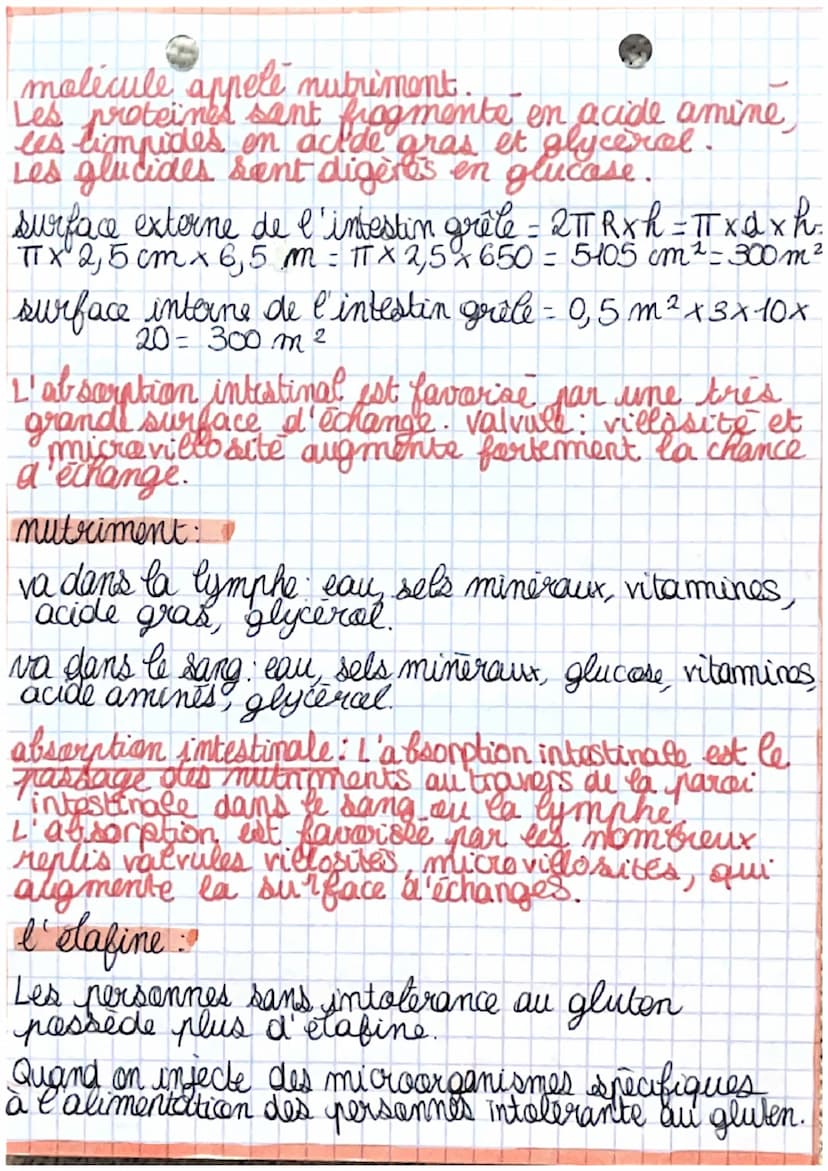 molécule appelé nutriment.
Les proteines sont fragmenté en acide aminé,
les limpides en acide gras et glycèrol.
Les glucides sont digèrés en glucose.
surface externe de l'intestin grêle = 2πR x h = π x d x h =
π x 2,5 cm x 6,5 m = π x 2,5 x 650 = 5105 cm² = 300 m²
surface interne de l'intestin grèle = 0,5 m² x 3 x 10 x
20 = 300 m²
L'absorption intestinal est favorisé par une très
grande surface d'échange. valvule : villosité et
microvillosité augmente fortement la chance
d'échange.
nutriment :
va dans la lymphe : eau, sels minéraux, vitamines,
acide gras, glycérol.
va dans le sang : eau, sels minéraux, glucose, vitamines,
acide aminés, glycérol.
absorption intestinale : L'absorption intestinale est le
passage des nutriments au travers de la paroi
intestinale dans le sang ou la lymphe.
L'absorption est favorisée par les nombreux
replis valvules villosités, microvillosités, qui
augmente la surface d'échanges.
l'élafine :
Les personnes sans intolérance au gluten
possède plus d'élafine.
Quand on injecte des microorganismes spécifiques
à l'alimentation des personnes intolérante au gluten.